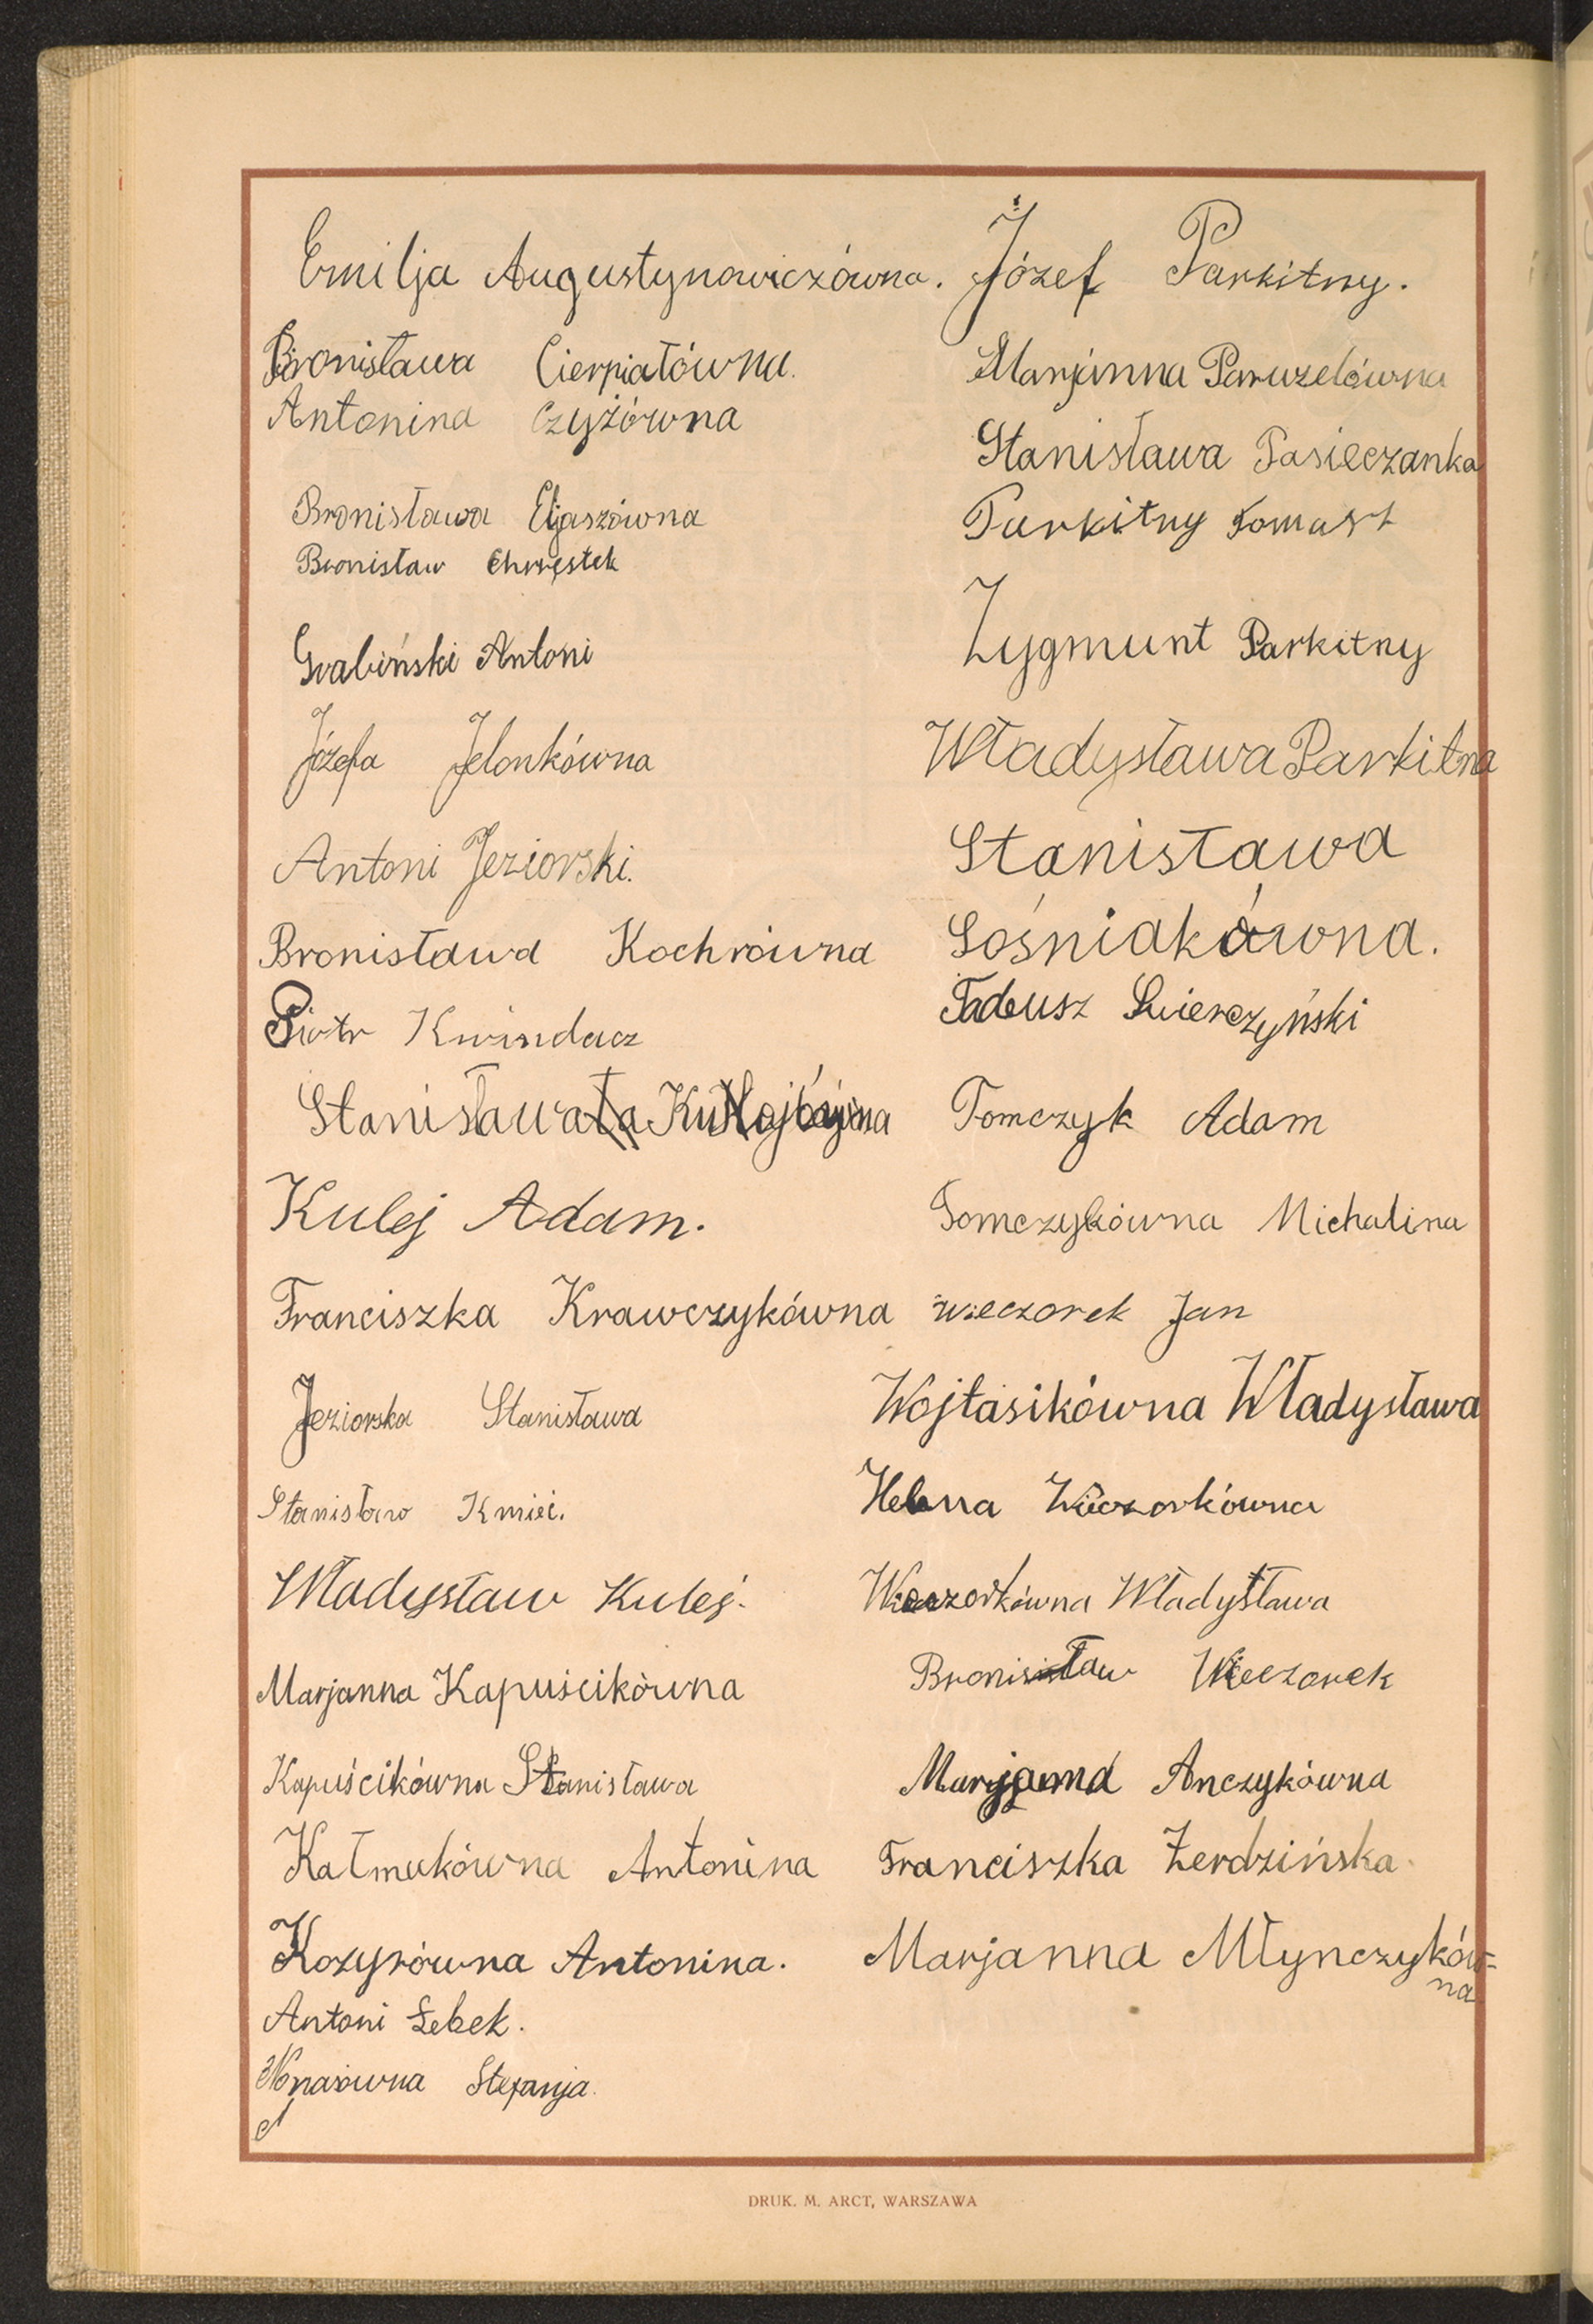 Emilja Augustynowiczówna.
Bronisława Cierpiałówna.
Antonina Czyżówna
Bronisława Eljaszówna
Bronisław Chrząstek
Grabiński Antoni
Józefa Jelonkówna
Antoni Jeziorski.
Bronisława Kochrówna
Piotr Kwindacz
Stanisława
Kulej Adam.
Franciszka Krawczykówna
Jeziorska Stanisława
Stanisław Kmieć.
Władysław Kulej.
Marjanna Kapuścikówna
Kapuścikówna Stanisława
Kałmukówna Antonina
Kozyrówna Antonina.
Antoni Łebek.
Stefanja.
Józef Parkitny.
Marjanna Paruzelówna
Stanisława Pasieczanka
Parkitny Tomasz
Zygmunt Parkitny
Władysława Parkitna
Stanisława
Sośniakówna.
Tadeusz Świerczyński
Tomczyk Adam
Tomczykówna Michalina
Wieczorek Jan
Wojtasikówna Władysława
Helena Wieczorkówna
Wieczorkówna Władysława
Bronisław Wieczorek
Marjanna Anczykówna
Franciszka Żerdzińska
Marjanna Młynczyków=
na
DRUK. M. ARCT, WARSZAWA